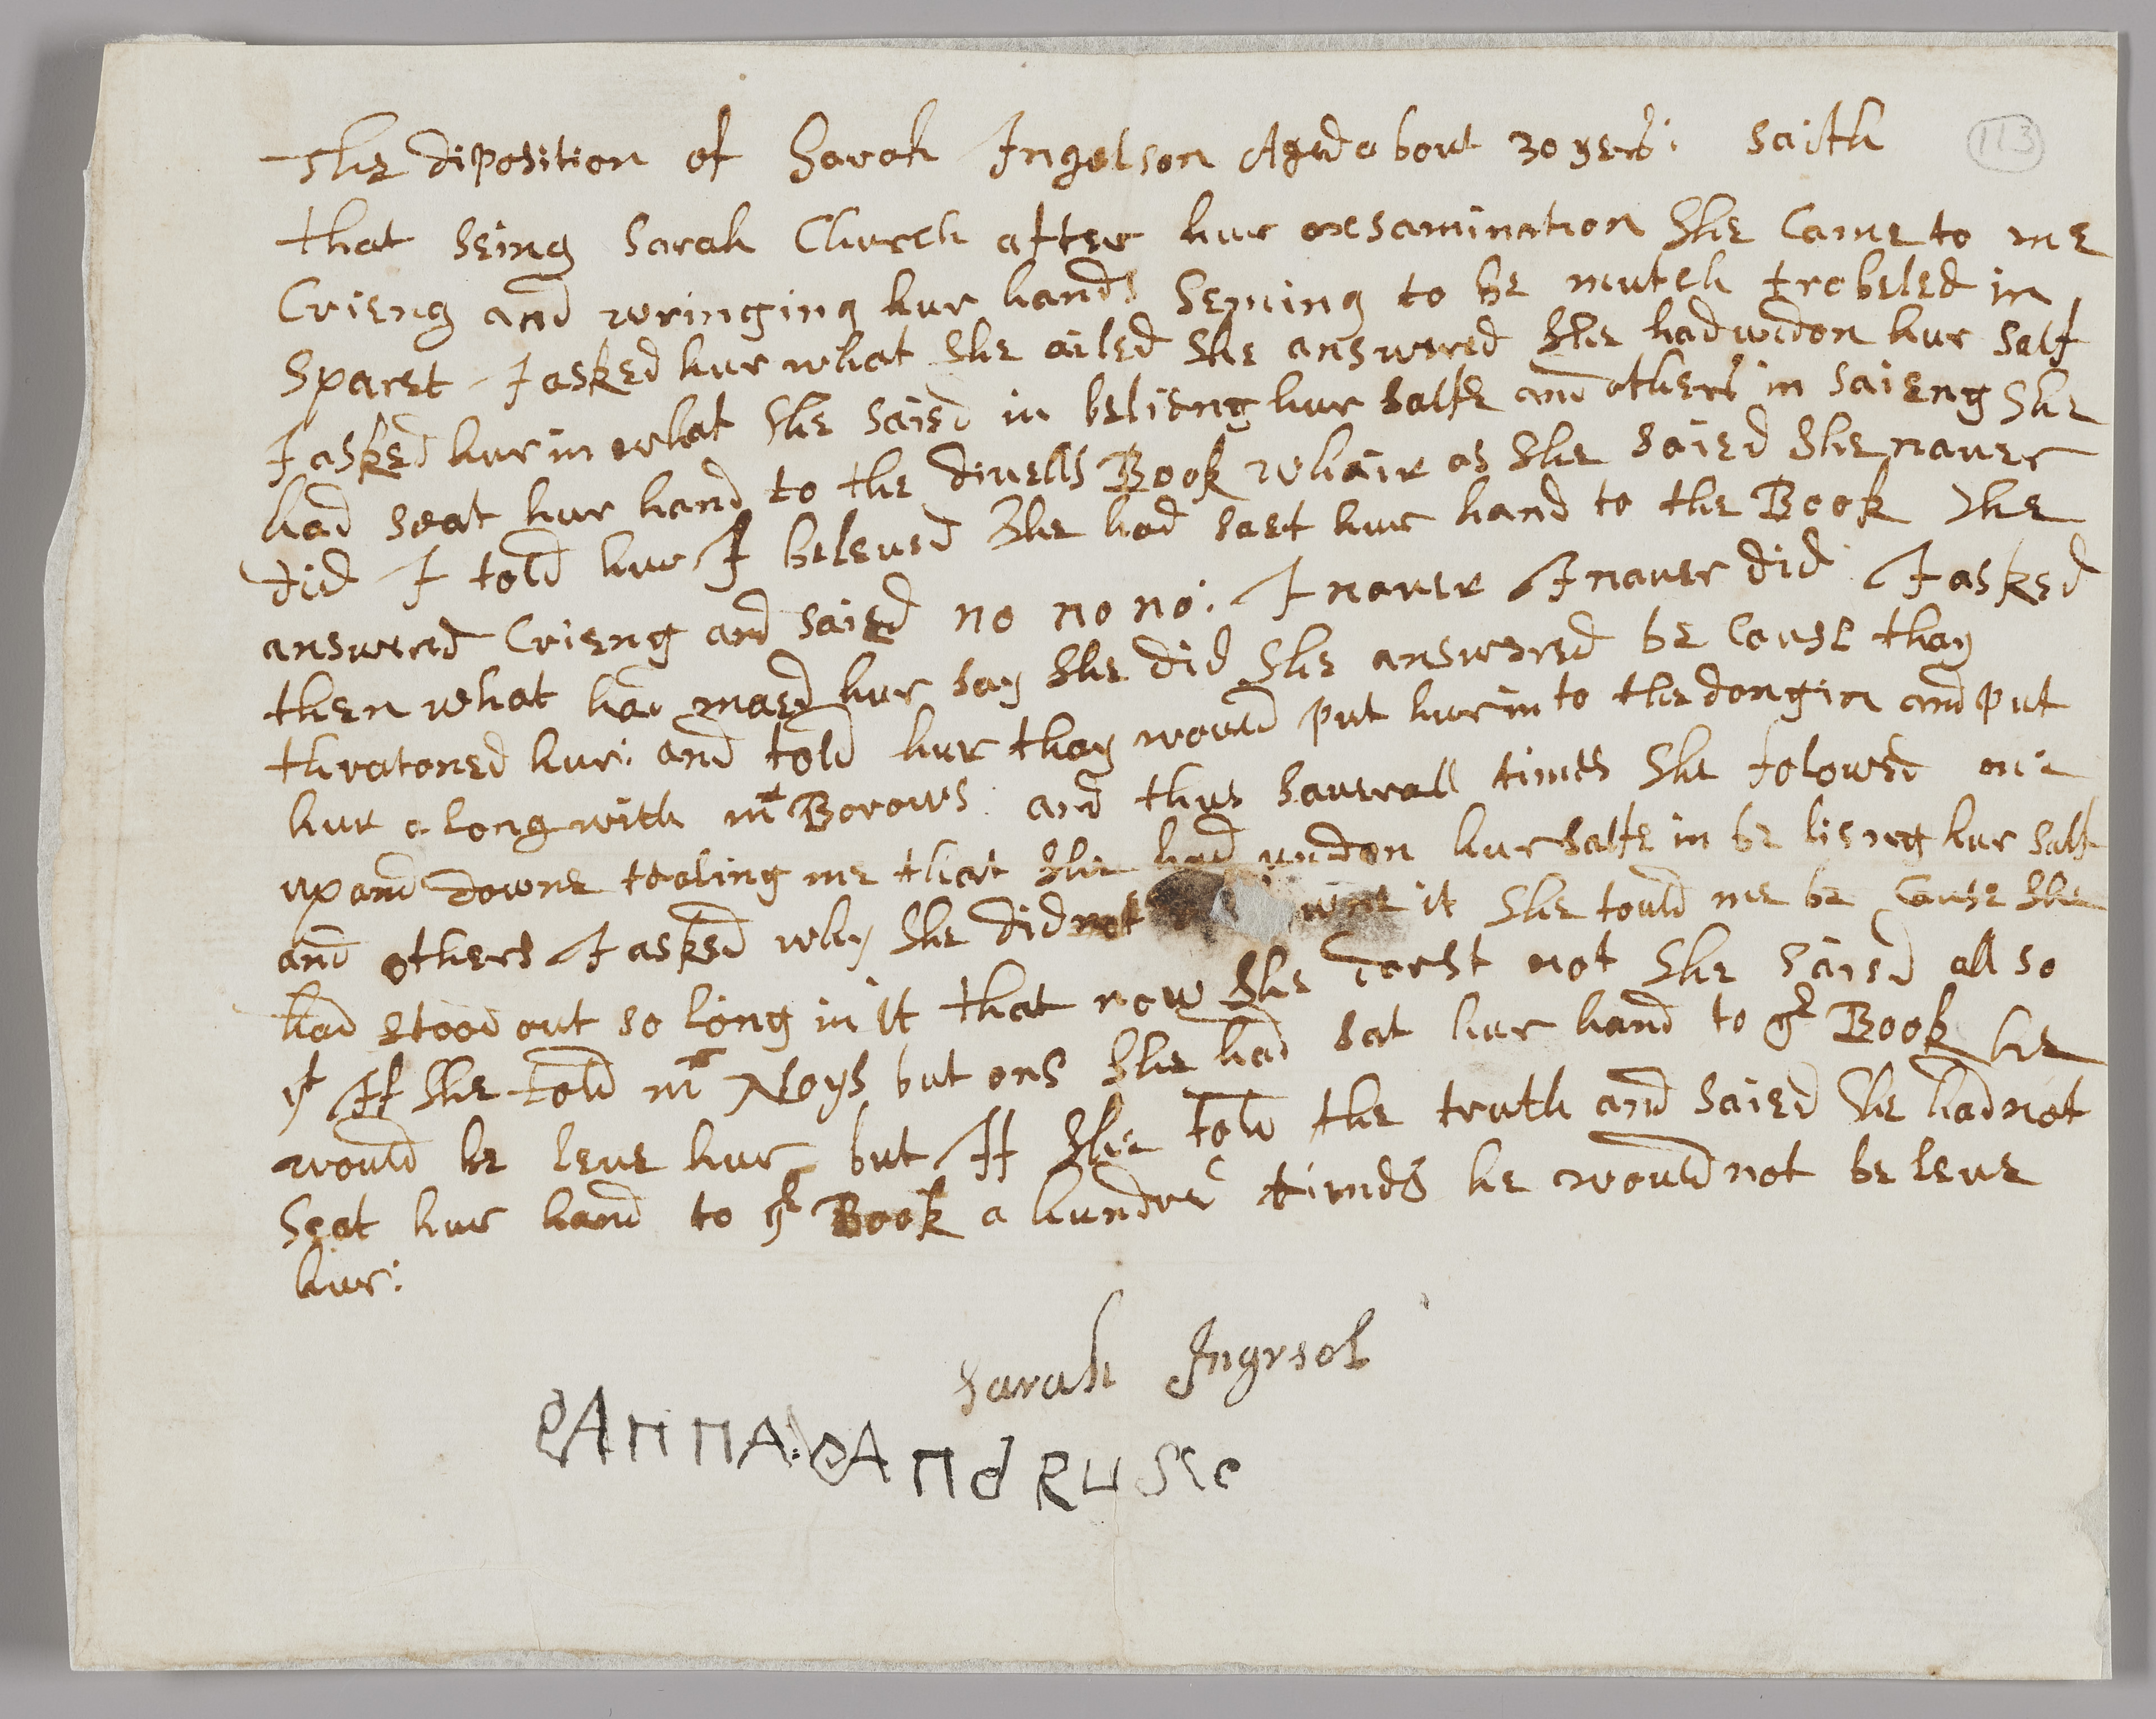 The diposition of Sarah Ingelson Aged about 30 yers: Saith
113
that seing Sarah Church after hur exsamination She Came to me
Crieng and wringing hur hands Seming to be mutch trobeled in
Sparet I asked hur what She ailed She answered She had undon hur Salf
I asked hur in what She saied in belieng hur Salfe and others in saieng She
had seat hur hand to the divells Book whair as She saied She naver
did I told hur I beleved She had saet hur hand to the Book She
answered Crieng and saied no no no: I naver I naver did I asked
then what had maed hur say She did She answered be Cause thay
thratoned hur: and told hur thay would put hur in to the dongin and put
hur along with mr Borows: and thus Saverall times She folowed me
up and downe tealing me that She had undon hur Salfe in be lieng hur Salf
and others I asked why She did not it She tould me be Cause She
had stood out so long in it that now She darst not She saied all so
yt If She told mr Noys but ons She had sat hur hand to ye Book he
would be leve hur but If She told the truth and saied She had not
Seat hur hand to ye Book a hundred times he would not be leve
hur:
Sarah Ingrsol
AnnA AndRusc